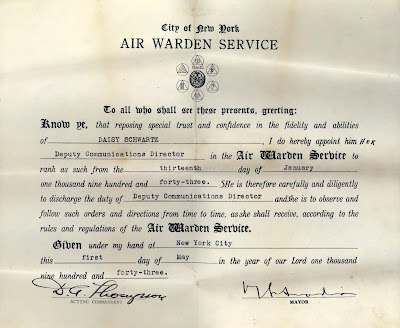 City of New York
AIR WARDEN SERVICE
To all who shall see these presents, greeting:
Know ye, that reposing special trust and confidence in the fidelity and abilities
of DAISY SCHWARTZ , I do hereby appoint him HER
Deputy Communications Director in the Air Warden Service to
rank as such from the thirteenth day of January
one thousand nine hundred and forty-three. SHe is therefore carefully and diligently
to discharge the duty of Deputy Communications Director and she is to observe and
follow such orders and directions from time to time, as she shall receive, according to the
rules and regulations of the Air Warden Service.
Given under my hand at New York City
this first day of May in the year of our Lord one thousand
nine hundred and forty-three.
D. A. Thompson
ACTING COMMANDANT MAYOR